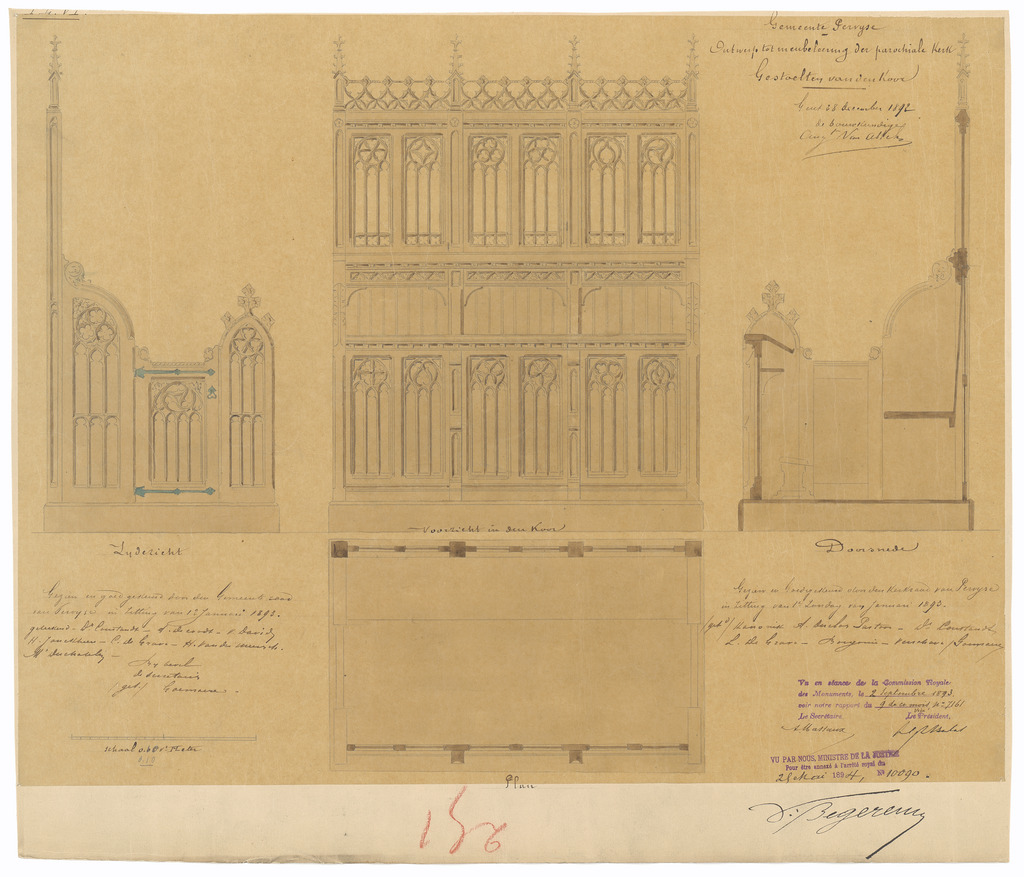 Gemeente Pervyse
Ontwerp tot meubeleering der parochiale Kerk
Gestoelten van den Koor
Gent 28 december 1892
de bouwkundige
Aug. Van Assche
Voorzicht in den Koor
Zydezicht
Doorsnede
Gezien en goed gekeurd door den Gemeente raad
van Pervyse in zitting van 1n Januari 1893.
geteekend - Dr Constandt - A. - David
H. Jonckheere - C. de Graeve - H. Van der meersch.
de secretaris
(get)
Gezien en Goedgekeurd door den Kerkraad van Pervyse
in zitting van 1n Zondag van Januari 1893.
Pastoor - Dr Constandt
L. De Graeve
Vu en séance de la Commission Royale
des Monuments, le 2 septembre 1893
voir notre rapport du 9 de ce mois, No 7161
Le Secrétaire, Le Président,
A. Massaux
VU PAR NOUS, MINISTRE DE LA JUSTICE
Pour être annexé à l'arrêté royal du
25 Mai 1894, No 10090.
schaal
1/10
Plan
V. Begerem
156